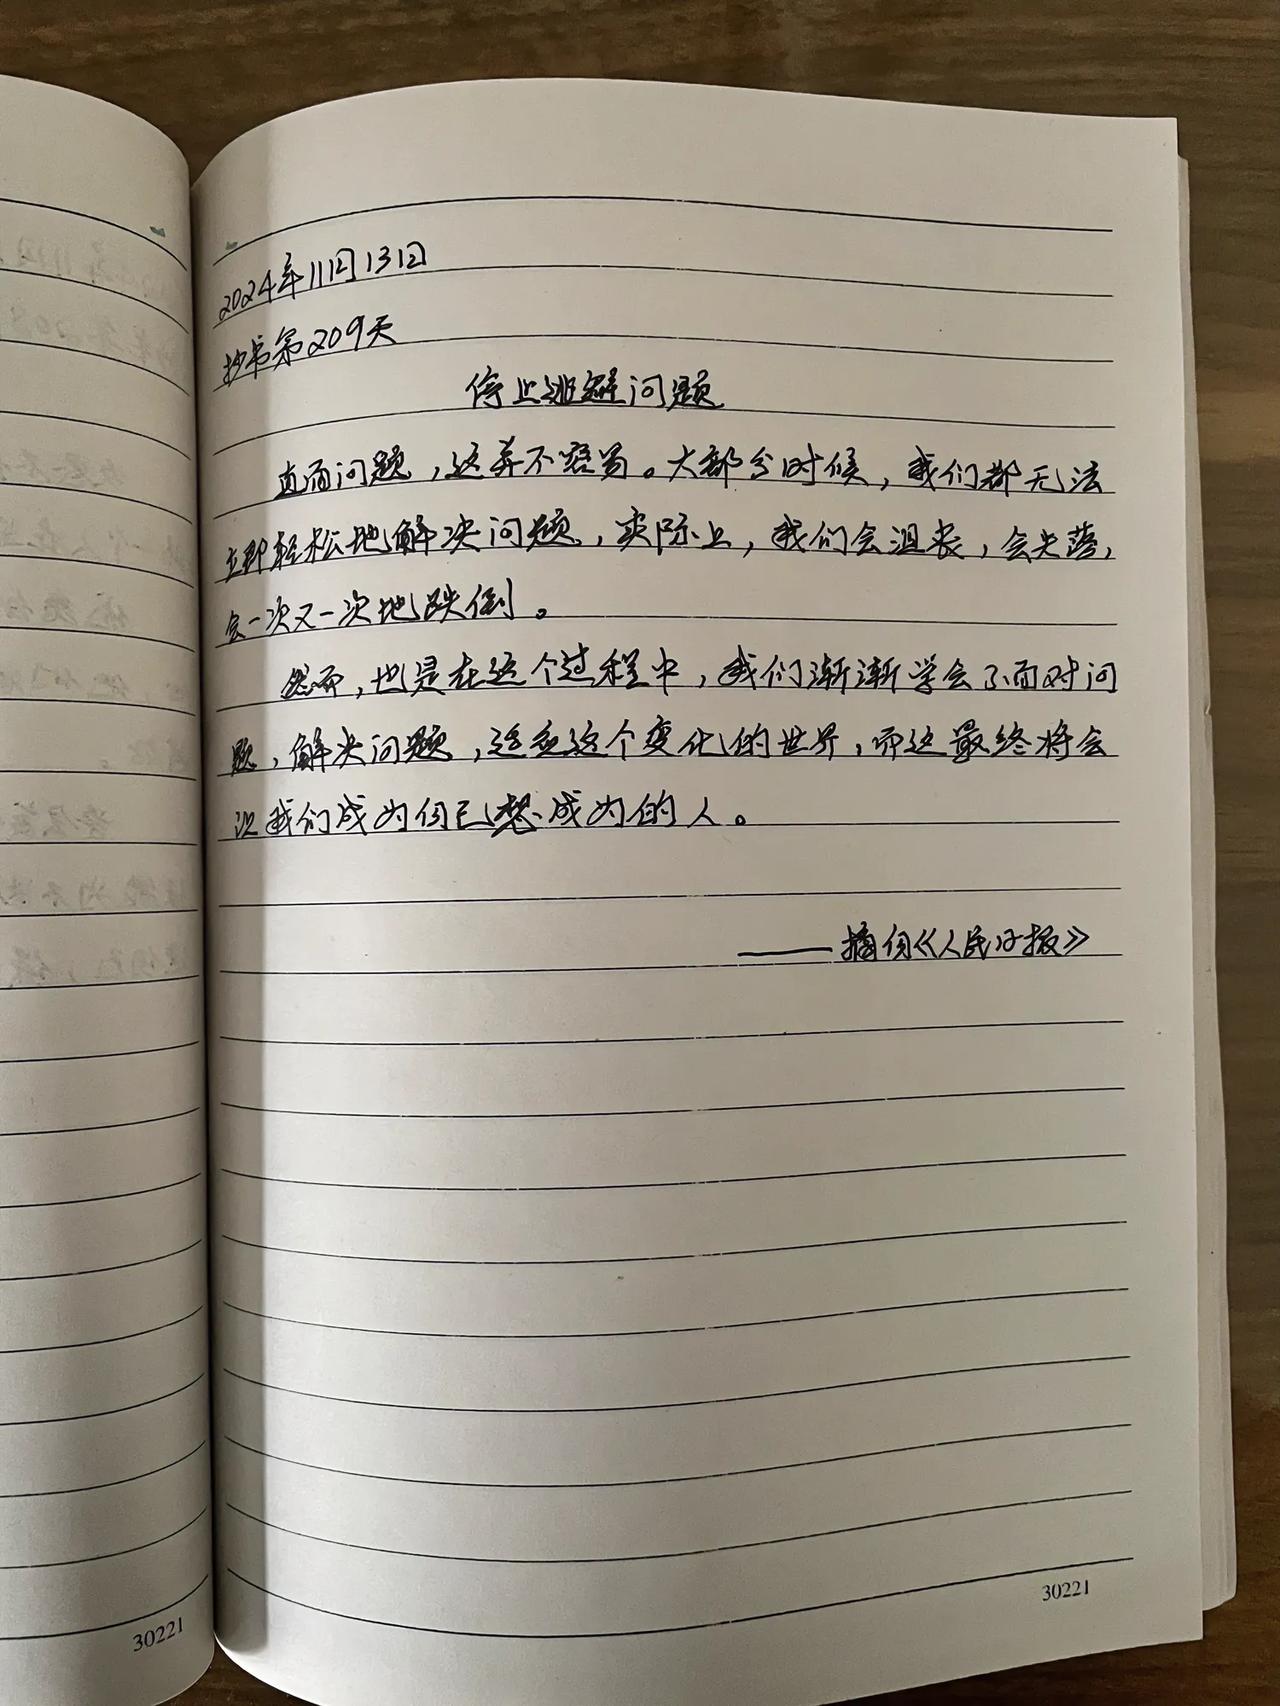 2024年11月13日
抄书第209天
停止逃避问题
直面问题，这并不容易。大部分时候，我们都无法
立即轻松地解决问题，实际上，我们会沮丧，会失落，
会一次又一次地跌倒。
然而，也是在这个过程中，我们渐渐学会了面对问
题，解决问题，适应这个变化的世界，而这最终将会
让我们成为自己想成为的人。
——摘自《人民日报》
30221
30221